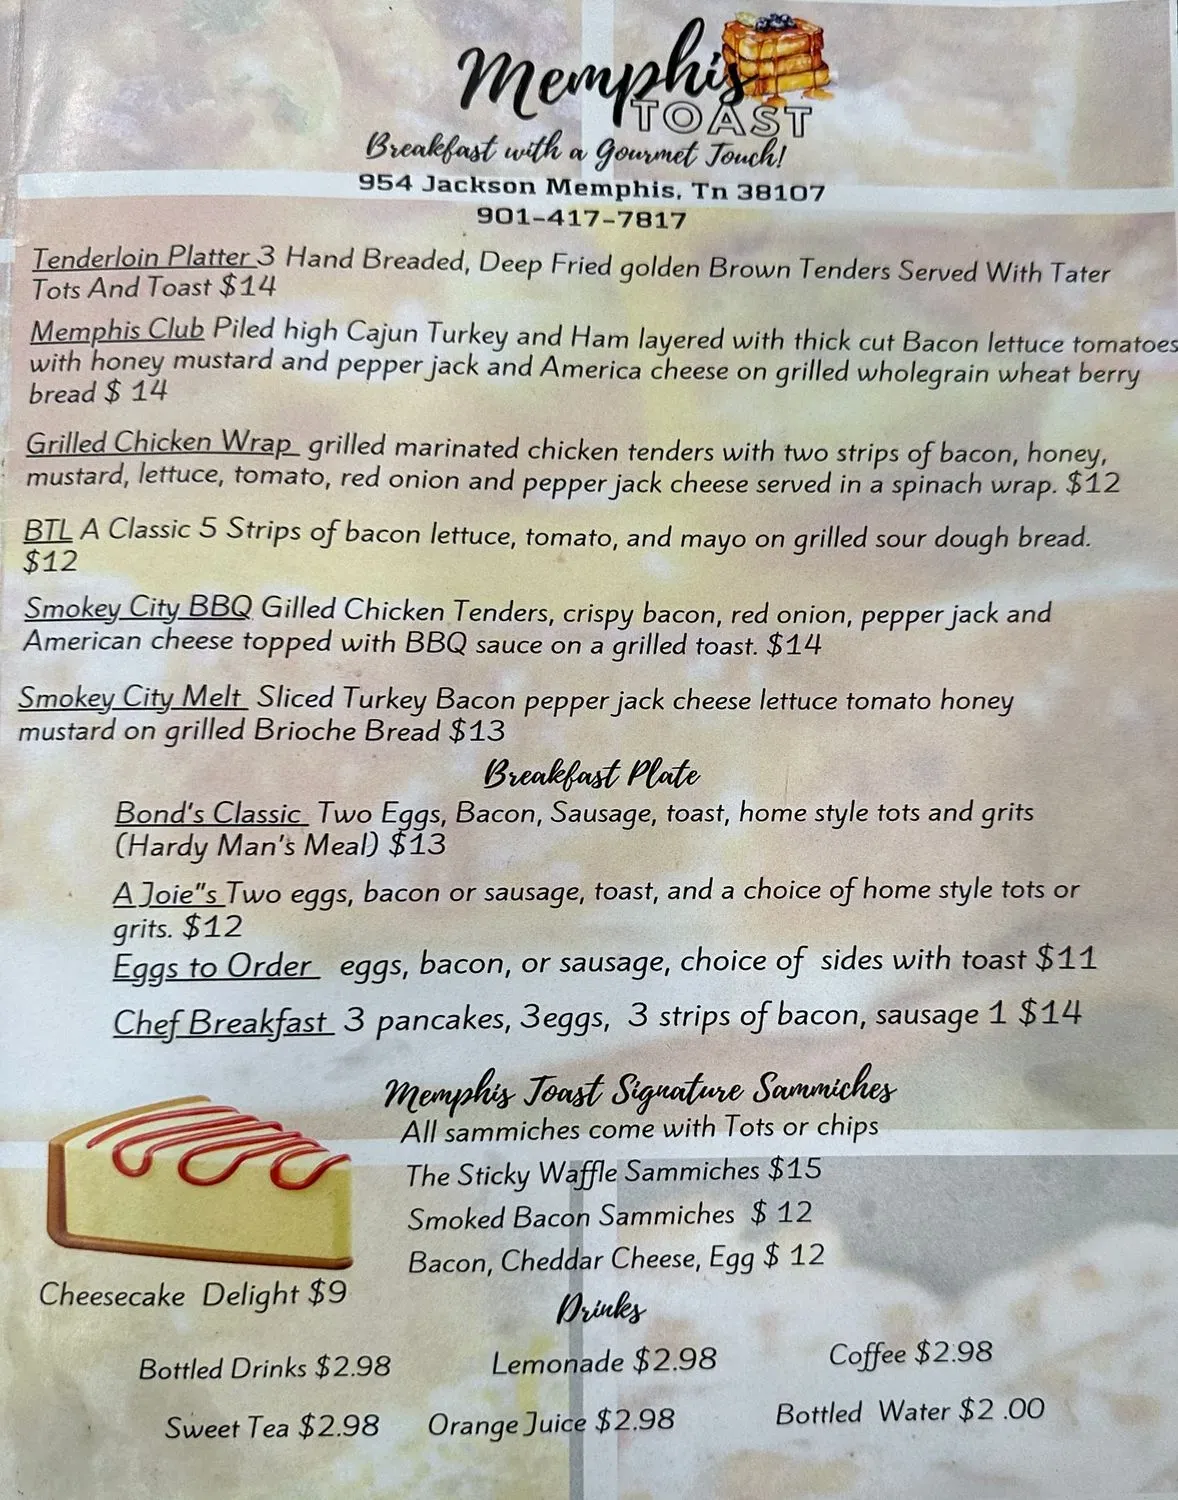 Memphis
TOAST
Breakfast with a Gourmet Touch!
954 Jackson Memphis, Tn 38107
901-417-7817
Tenderloin Platter 3 Hand Breaded, Deep Fried golden Brown Tenders Served With Tater
Tots And Toast $14
Memphis Club Piled high Cajun Turkey and Ham layered with thick cut Bacon lettuce tomatoes
with honey mustard and pepper jack and America cheese on grilled wholegrain wheat berry
bread $ 14
Grilled Chicken Wrap grilled marinated chicken tenders with two strips of bacon, honey,
mustard, lettuce, tomato, red onion and pepper jack cheese served in a spinach wrap. $12
BTL A Classic 5 Strips of bacon lettuce, tomato, and mayo on grilled sour dough bread.
$12
Smokey City BBQ Gilled Chicken Tenders, crispy bacon, red onion, pepper jack and
American cheese topped with BBQ sauce on a grilled toast. $14
Smokey City Melt Sliced Turkey Bacon pepper jack cheese lettuce tomato honey
mustard on grilled Brioche Bread $13
Breakfast Plate
Bond's Classic Two Eggs, Bacon, Sausage, toast, home style tots and grits
(Hardy Man's Meal) $13
A Joie"s Two eggs, bacon or sausage, toast, and a choice of home style tots or
grits. $12
Eggs to Order eggs, bacon, or sausage, choice of sides with toast $11
Chef Breakfast 3 pancakes, 3eggs, 3 strips of bacon, sausage 1 $14
Memphis Toast Signature Sammiches
All sammiches come with Tots or chips
The Sticky Waffle Sammiches $15
Smoked Bacon Sammiches $ 12
Bacon, Cheddar Cheese, Egg $ 12
Cheesecake Delight $9
Drinks
Bottled Drinks $2.98 Lemonade $2.98 Coffee $2.98
Sweet Tea $2.98 Orange Juice $2.98 Bottled Water $2 .00